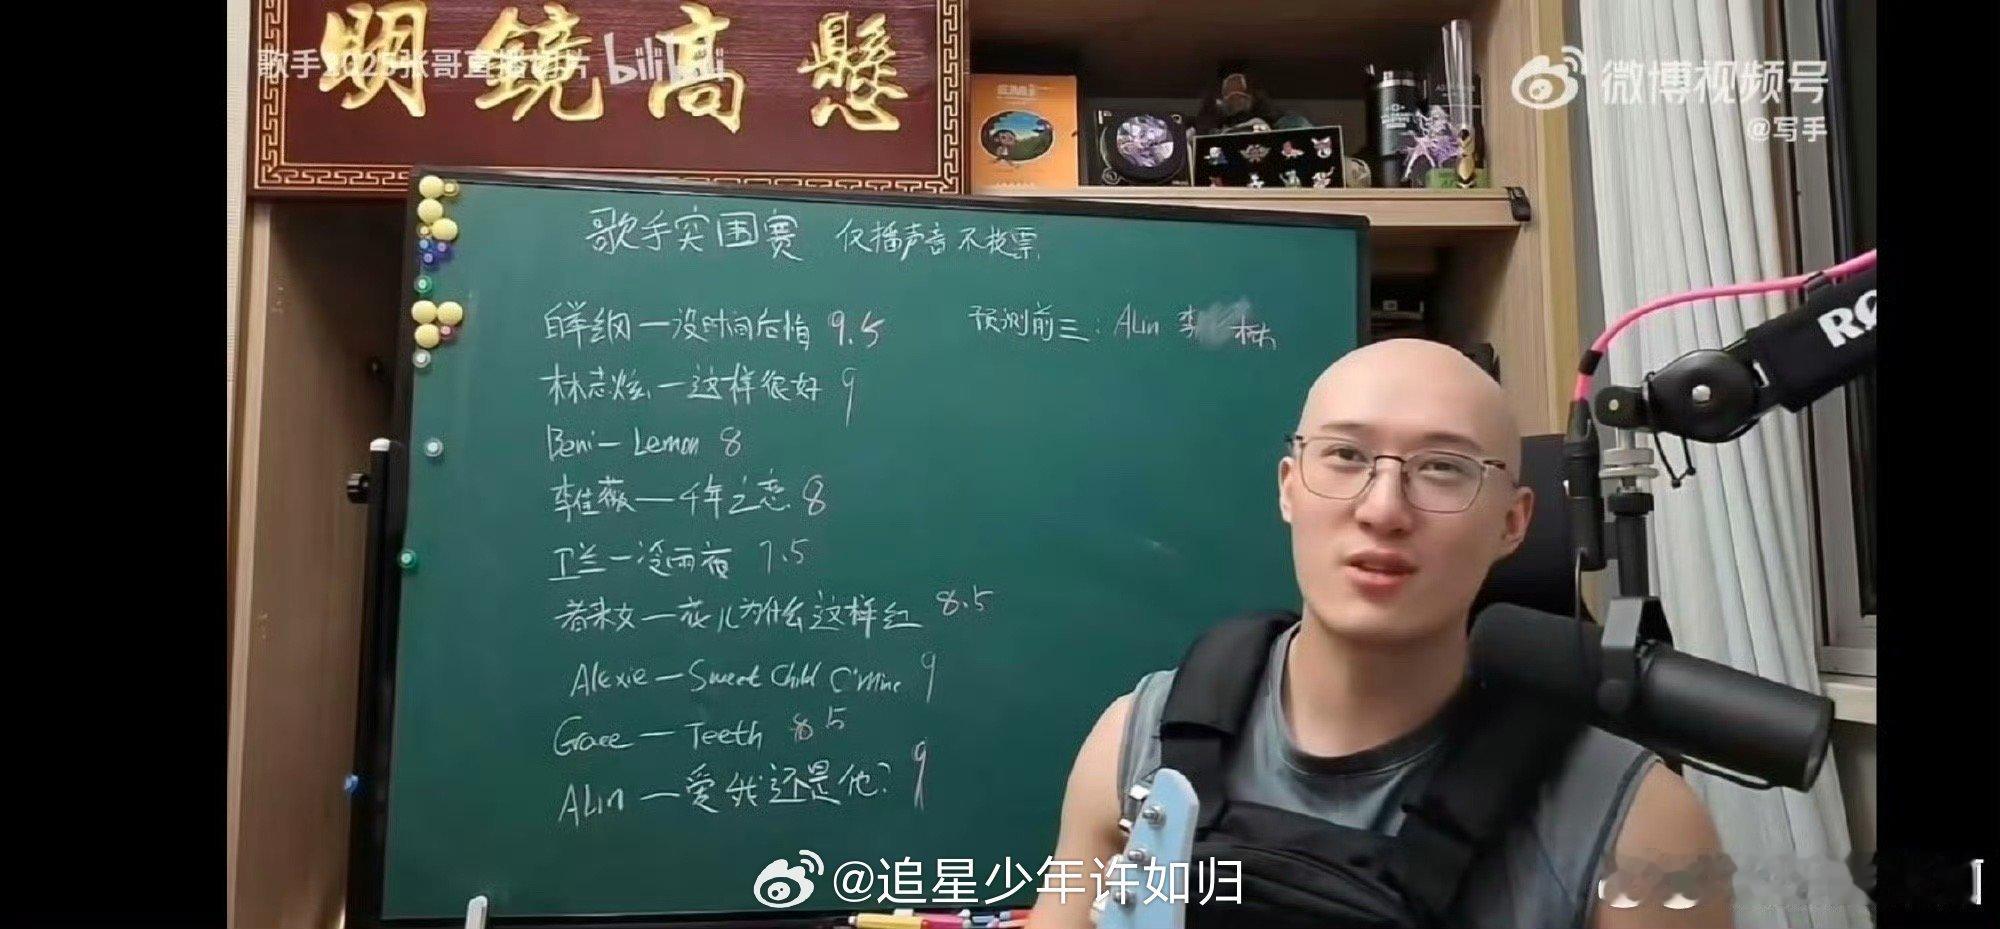 明鏡高懸
歌手2025张哥直播切片 bilibili
微博视频号
@写手
歌手突围赛 仅播声音不投票
白举纲—没时间后悔 9.5
预测前三：ALin 李 林
林志炫—这样很好 9
Beni—Lemon 8
李佳薇—千年之恋 8
卫兰—冷雨夜 7.5
者来女—花儿为什么这样红 8.5
Alexie—Sweet Child O'Mine 9
Grace—Teeth 8.5
ALin—爱我还是他? 9
@追星少年许如归